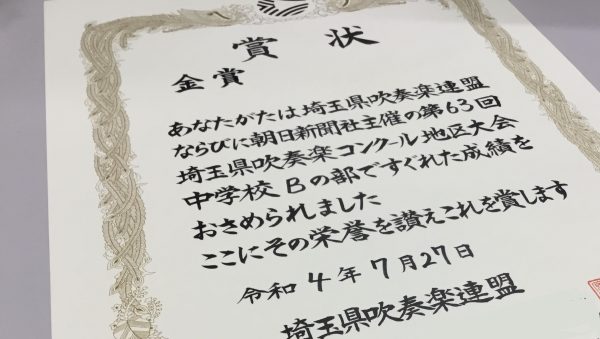 賞状
金賞
あなたがたは埼玉県吹奏楽連盟
ならびに朝日新聞社主催の第63回
埼玉県吹奏楽コンクール地区大会
中学校Bの部ですぐれた成績を
おさめられました
ここにその栄誉を讃えこれを賞します
令和4年7月27日
埼玉県吹奏楽連盟